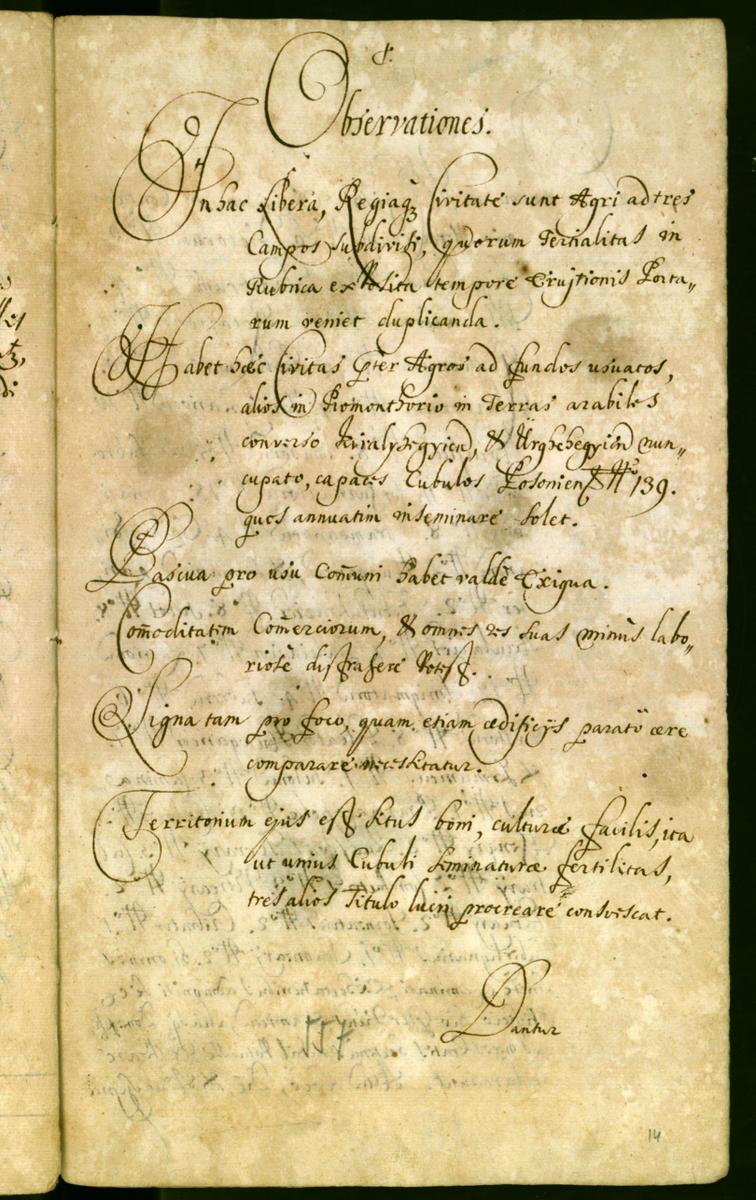 8.
Observationes.
In hac Libera, Regiaq3 Civitate sunt Agri ad tres
Campos subdivisi, quorum Tertialitas in
Rubrica exposita tempore Eruitionis Porta„
rum veniet duplicanda.
Habet haec Civitas pter Agros ad fundos usuatos,
alios in Promonthorio in Terras arabiles
converso Kiralyhegyien, & Ürghehegyien nun„
cupato, capaces Cubulos Posonien 139.
quos annuatim inseminare solet.
Pascua pro usu Com̃uni habet valdè Exigua.
Com̃oditatem Com̃erciorum, & omnes res suas minùs labo„
riosè distrahere Potest.
Ligna tam pro foco, quam etiam aedificÿs parato aere
comparare necessitatur.
Territorium ejus est situs boni, culturae facilis, ita
ut unius Cubuli seminaturae fertilitas,
tres alios Titulo lucri procreare consvescat.
Dantur
557
14